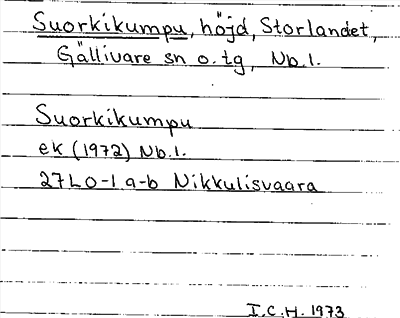 Suorkikumpu, höjd, Storlandet,
Gällivare sn o. tg, Nb.l.
Suorkikumpu
ek (1972) Nb.l.
27L0-1 a-b Nikkulisvaara
I.C.H. 1973